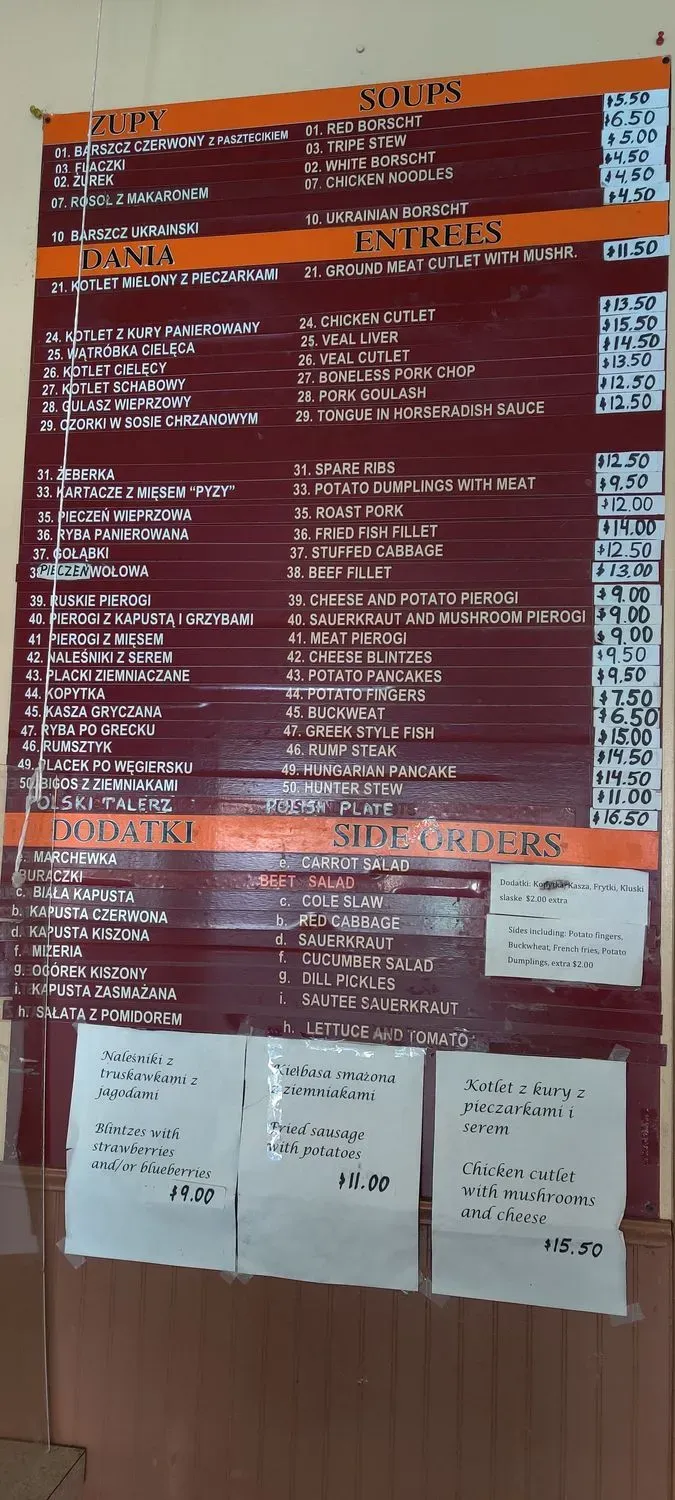 ZUPY SOUPS
01. BARSZCZ CZERWONY Z PASZTECIKIEM 01. RED BORSCHT $5.50
03. FLACZKI 03. TRIPE STEW $6.50
02. ŻUREK 02. WHITE BORSCHT $5.00
07. ROSÓŁ Z MAKARONEM 07. CHICKEN NOODLES $4.50
$4.50
10 BARSZCZ UKRAINSKI 10. UKRAINIAN BORSCHT $4.50
DANIA ENTREES
21. KOTLET MIELONY Z PIECZARKAMI 21. GROUND MEAT CUTLET WITH MUSHR. $11.50
24. KOTLET Z KURY PANIEROWANY 24. CHICKEN CUTLET $13.50
25. WĄTRÓBKA CIELĘCA 25. VEAL LIVER $15.50
26. KOTLET CIELĘCY 26. VEAL CUTLET $14.50
27. KOTLET SCHABOWY 27. BONELESS PORK CHOP $13.50
28. GULASZ WIEPRZOWY 28. PORK GOULASH $12.50
29. OZORKI W SOSIE CHRZANOWYM 29. TONGUE IN HORSERADISH SAUCE $12.50
31. ŻEBERKA 31. SPARE RIBS $12.50
33. KARTACZE Z MIĘSEM “PYZY” 33. POTATO DUMPLINGS WITH MEAT $9.50
35. PIECZEŃ WIEPRZOWA 35. ROAST PORK $12.00
36. RYBA PANIEROWANA 36. FRIED FISH FILLET $14.00
37. GOŁĄBKI 37. STUFFED CABBAGE $12.50
38 PIECZEŃ WOŁOWA 38. BEEF FILLET $13.00
39. RUSKIE PIEROGI 39. CHEESE AND POTATO PIEROGI $9.00
40. PIEROGI Z KAPUSTĄ I GRZYBAMI 40. SAUERKRAUT AND MUSHROOM PIEROGI $9.00
41 PIEROGI Z MIĘSEM 41. MEAT PIEROGI $9.00
42. NALEŚNIKI Z SEREM 42. CHEESE BLINTZES $9.50
43. PLACKI ZIEMNIACZANE 43. POTATO PANCAKES $9.50
44. KOPYTKA 44. POTATO FINGERS $7.50
45. KASZA GRYCZANA 45. BUCKWEAT $6.50
47. RYBA PO GRECKU 47. GREEK STYLE FISH $15.00
46. RUMSZTYK 46. RUMP STEAK $14.50
49. PLACEK PO WĘGIERSKU 49. HUNGARIAN PANCAKE $14.50
50. BIGOS Z ZIEMNIAKAMI 50. HUNTER STEW $11.00
POLSKI TALERZ POLISH PLATE $16.50
DODATKI SIDE ORDERS
e. MARCHEWKA e. CARROT SALAD
BURACZKI BEET SALAD
c. BIAŁA KAPUSTA c. COLE SLAW
b. KAPUSTA CZERWONA b. RED CABBAGE
d. KAPUSTA KISZONA d. SAUERKRAUT
f. MIZERIA f. CUCUMBER SALAD
g. OGÓREK KISZONY g. DILL PICKLES
i. KAPUSTA ZASMAŻANA i. SAUTEE SAUERKRAUT
h. SAŁATA Z POMIDOREM h. LETTUCE AND TOMATO
Dodatki: Kopytka, Kasza, Frytki, Kluski
slaske $2.00 extra
Sides including: Potato fingers,
Buckwheat, French fries, Potato
Dumplings, extra $2.00
Naleśniki z
truskawkami z
jagodami
Blintzes with
strawberries
and/or blueberries
$9.00
Kiełbasa smażona
z ziemniakami
Fried sausage
with potatoes
$11.00
Kotlet z kury z
pieczarkami i
serem
Chicken cutlet
with mushrooms
and cheese
$15.50